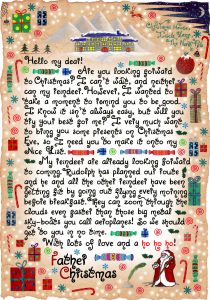 Hello my dear!
Are you looking forward
to Christmas? I can't wait, and neither
can my reindeer. However, I wanted to
take a moment to remind you to be good.
I know it isn't always easy, but will you
try your best for me? I very much want
to bring you some presents on Christmas
Eve, so I need you to make it onto my
Nice List.
My reindeer are already looking forward
to coming. Rudolph has planned our route
and he and all the other reindeer have been
getting fit by going out flying every morning
before breakfast. They can zoom through the
clouds even faster than those big metal
sky-boats you call aeroplanes! So we should
get to you in no time.
With lots of love and a ho ho ho!
Father
Christmas